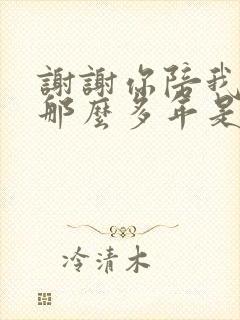 謝謝你陪我
那麼多年是
冷清木